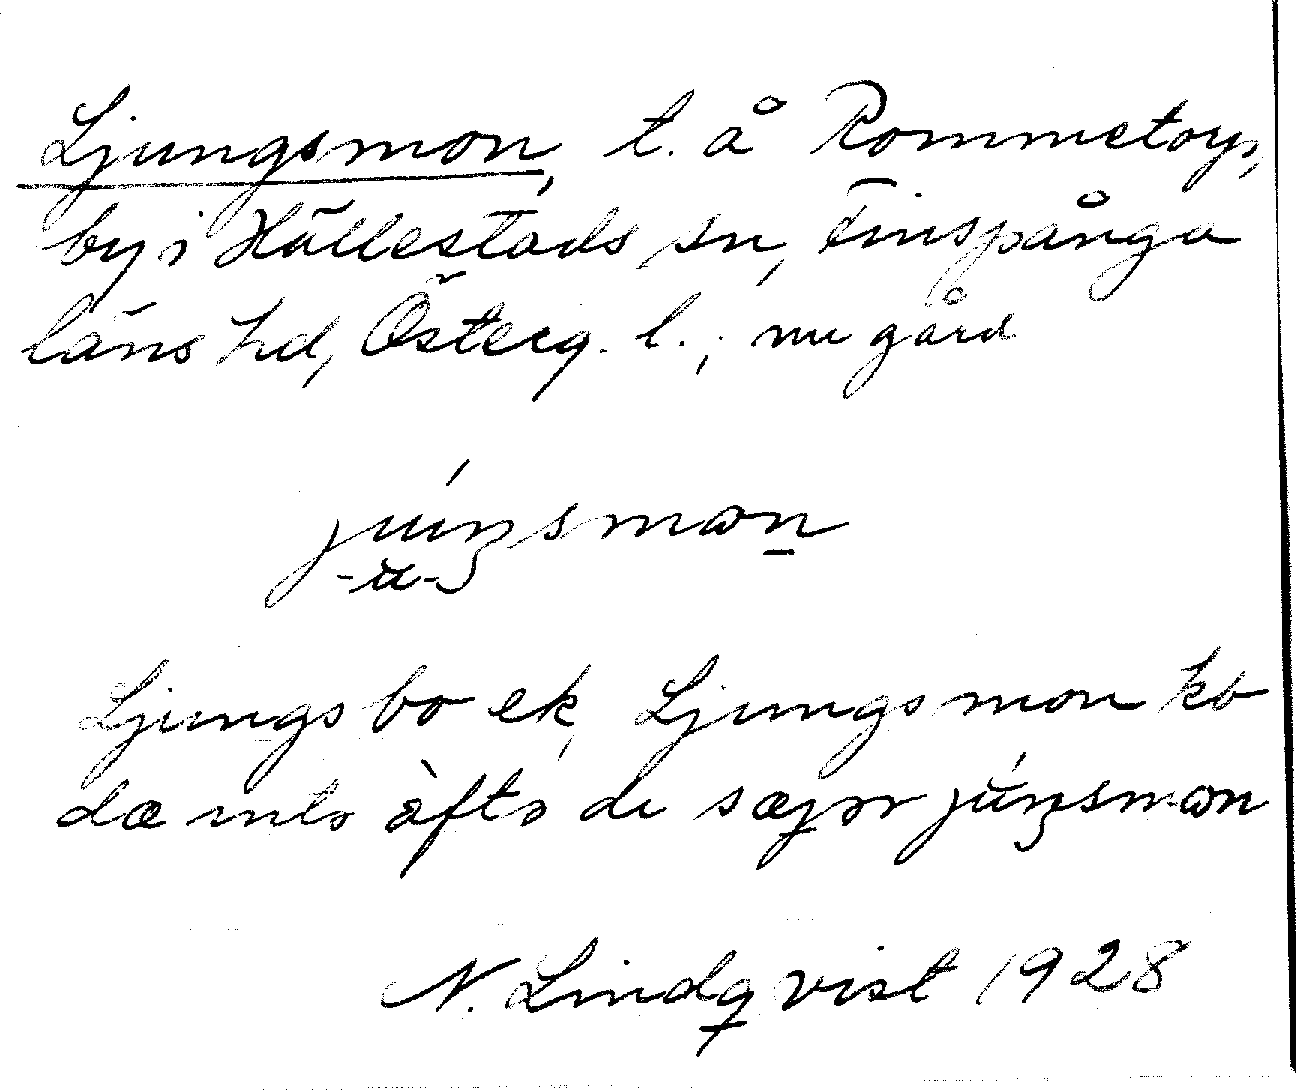 Ljungsmon, t. å Rommetorp,
by i Hällestads sn, Finspånga
läns hd, Österg. l.; nu gård
júŋsmɷn
-ʉ-
Ljungsbo ek, Ljungsmon ko
dæ inte ofta di sæjər júŋsmɷn
N. Lindqvist 1928